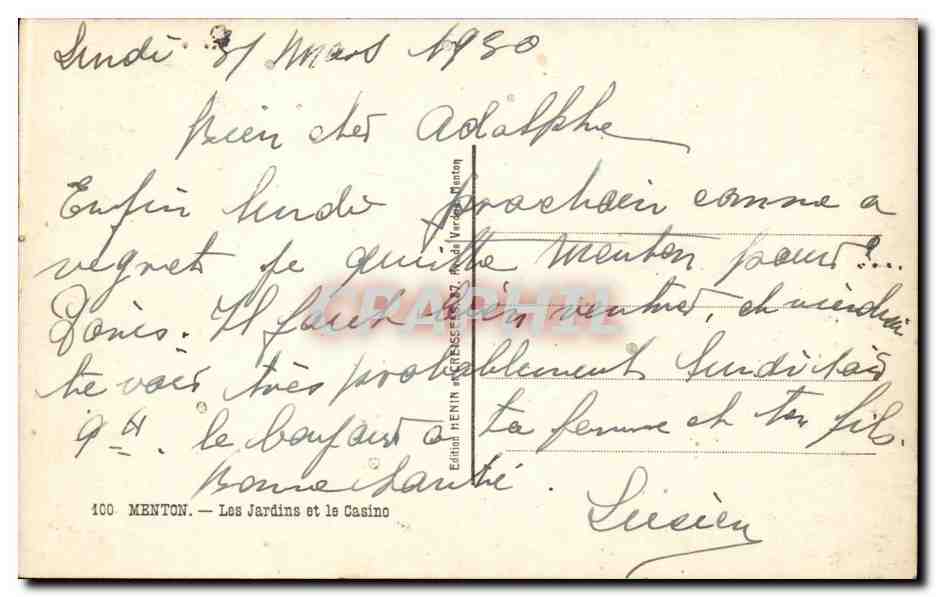 Lundi 31 Mars 1930
Bien cher Adolphe
Enfin lundi prochain comme a
regret je quitte Menton pour ?...
Paris. Il faut bien rentrer, et viendrai
te voir très probablement lundi soir
9 H. le bonjour a ta femme et ton fils.
Bonne santé.
Lucien
100 MENTON. — Les Jardins et le Casino
Edition HENIN et 87, Rue de Menton
CRAPHIL